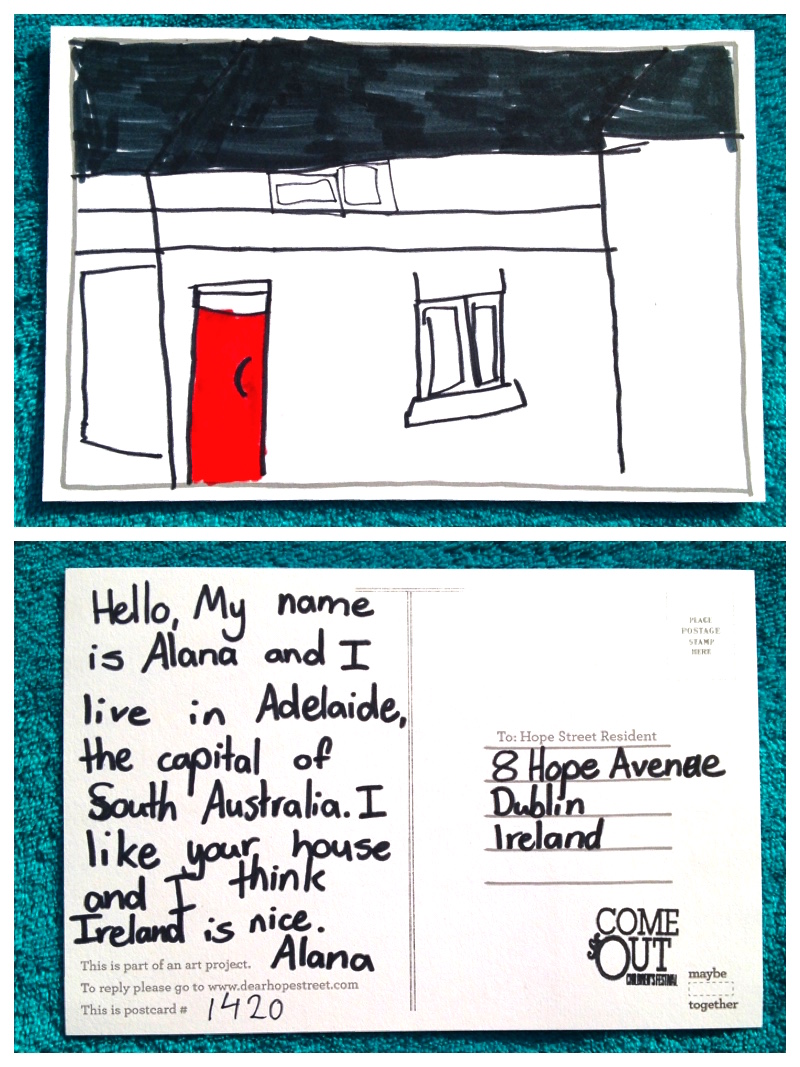 Hello, My name
is Alana and I
live in Adelaide,
the capital of
South Australia. I
like your house
and I think
Ireland is nice.
Alana
This is part of an art project.
To reply please go to www.dearhopestreet.com
This is postcard # 1420
PLACE
POSTAGE
STAMP
HERE
To: Hope Street Resident
8 Hope Avenue
Dublin
Ireland
COME
OUT
CHILDREN'S FESTIVAL
maybe
together